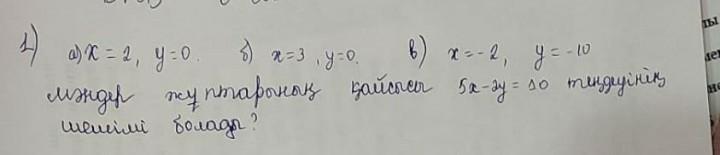 1) а) x = 2, y = 0. б) x = 3, y = 0. в) x = -2, y = -10
мәндер жұптарының қайсысы 5x - 2y = 10 теңдеуінің
шешімі болады?